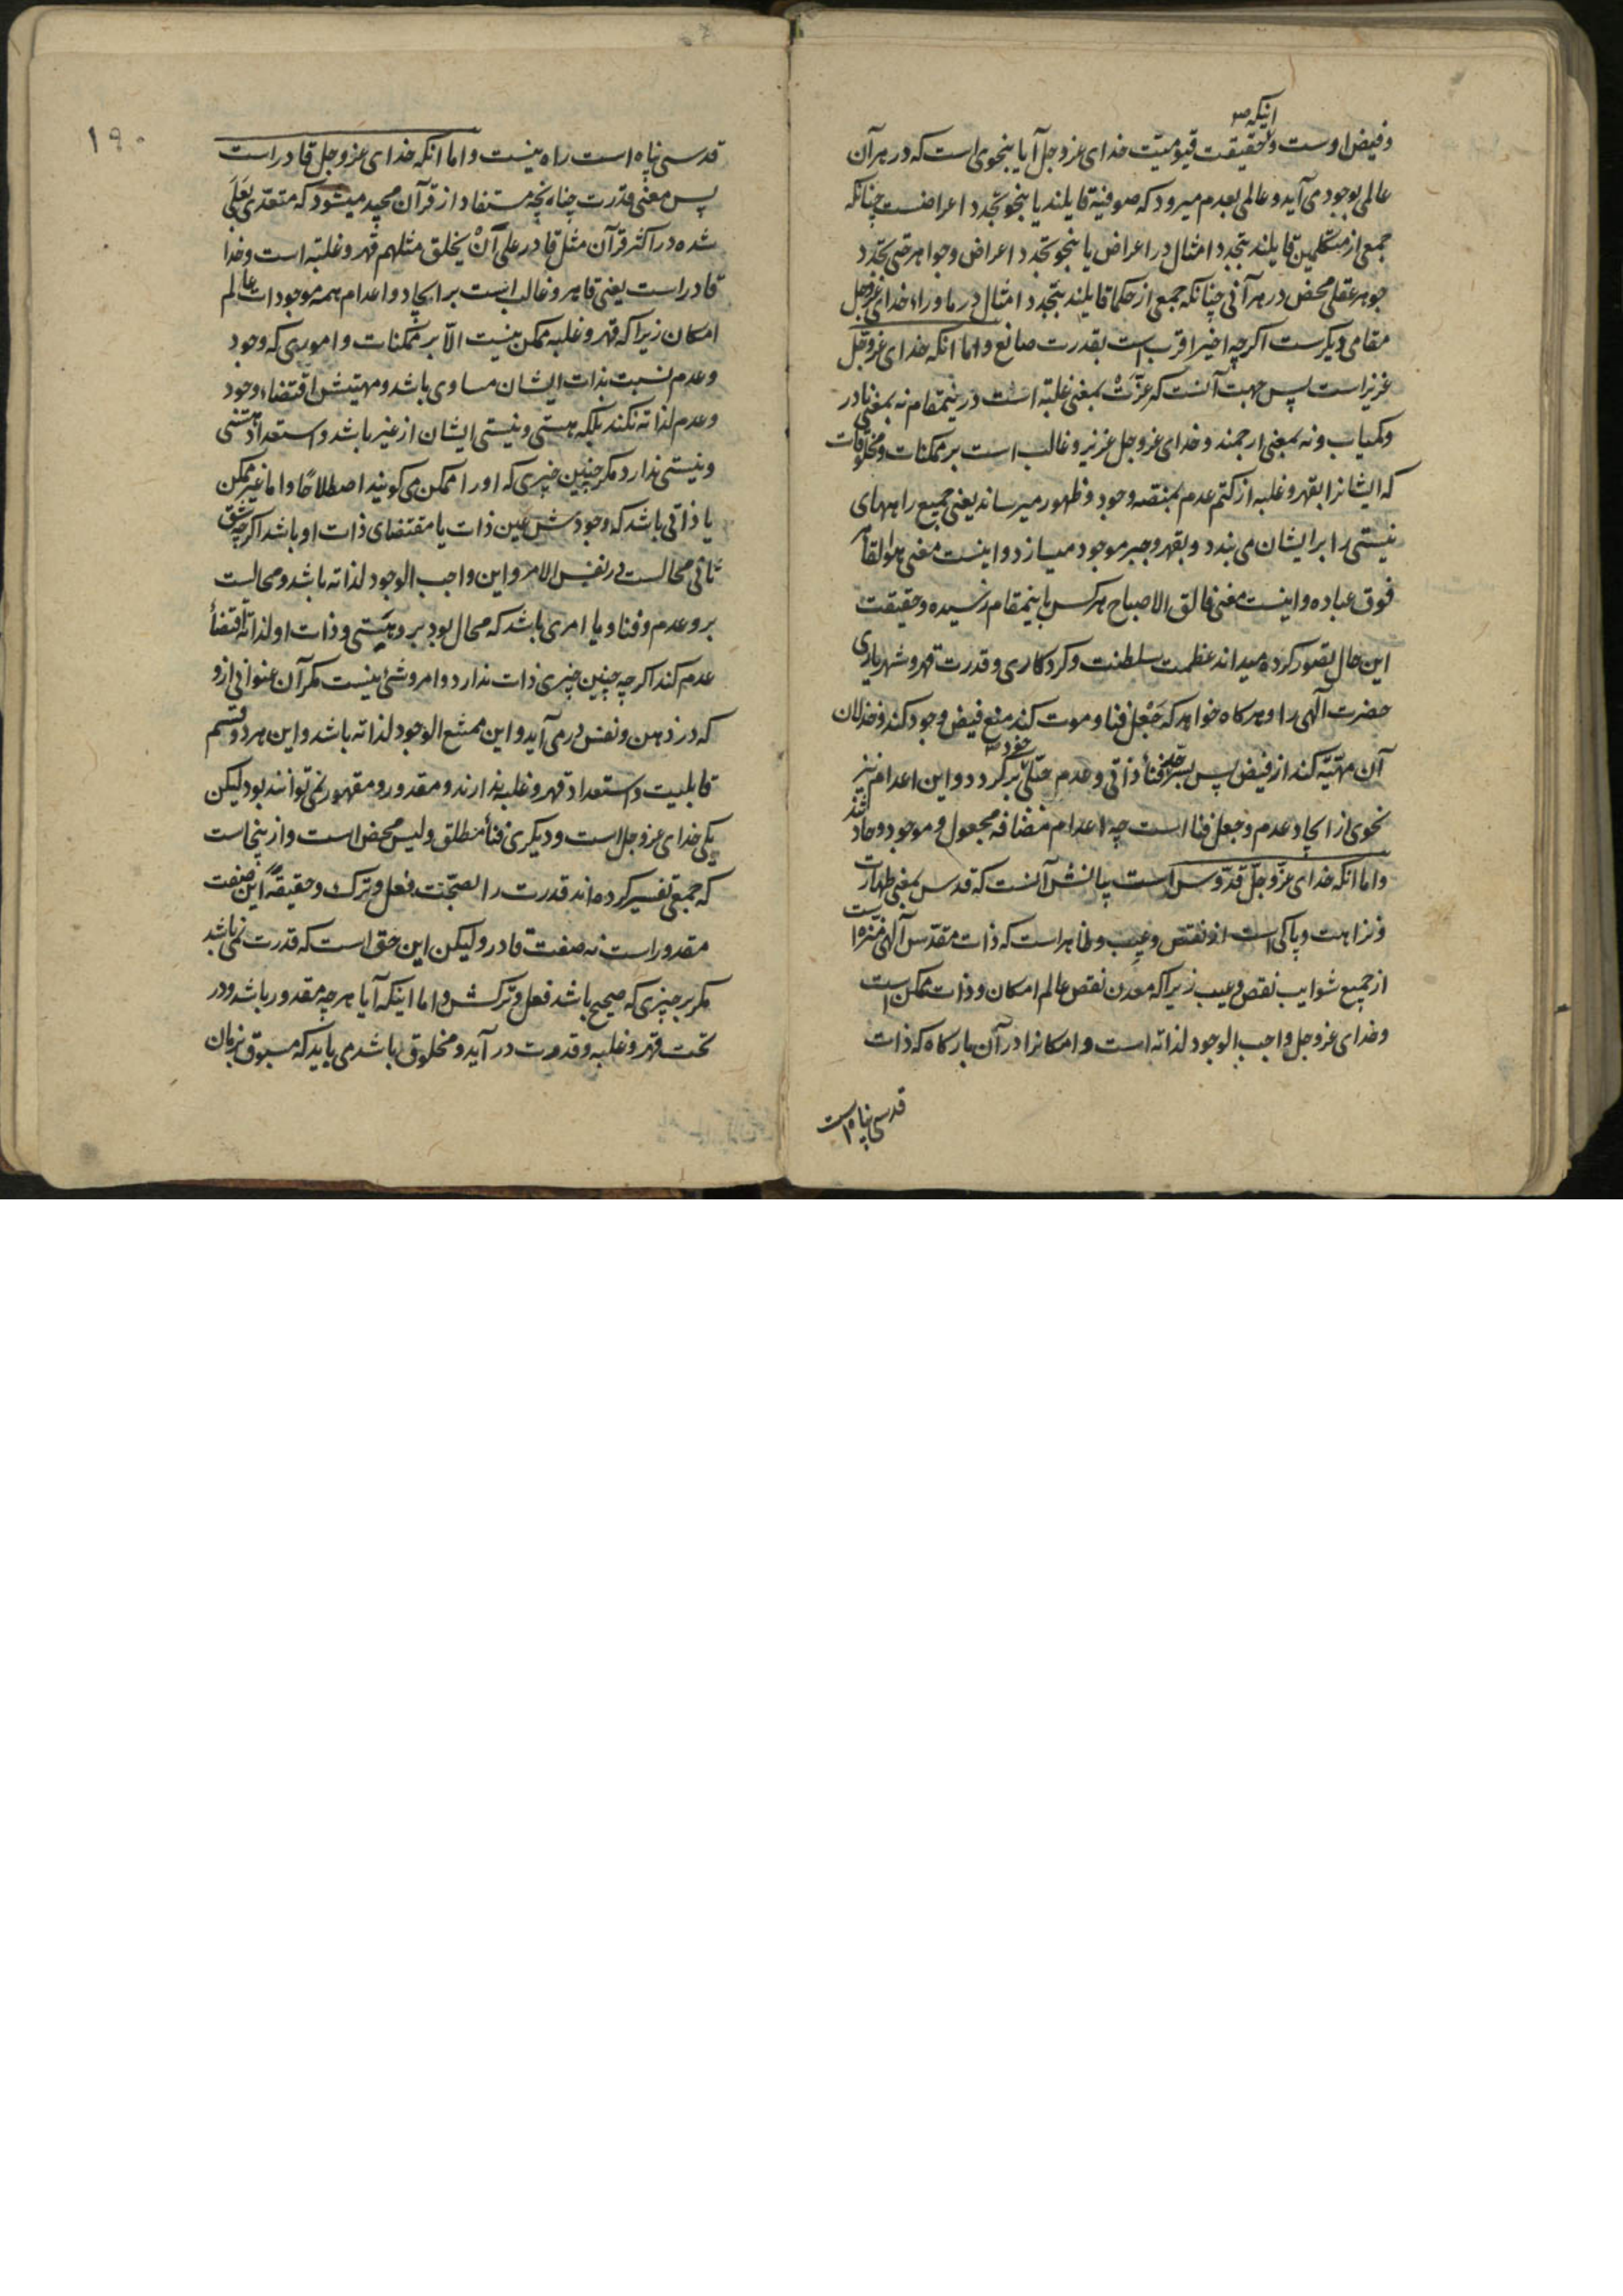 اینکه صح
و فیض اوست و حقیقت قیومیت خدای عزوجل آیا بنحوی است که در هر آن
عالمی بوجود می آید و عالمی بعدم میرود که صوفیه قایلند یا بنحو تجدد اعراضست چنانکه
جمعی از متکلمین قایلند بتجدد امثال در اعراض یا بنحو تجدد اعراض و جواهر حتی تجدد
جوهر عقلی محض در هر آنی چنانکه جمعی از حکما قایلند بتجدد امثال در ماوراء خدای عزوجل
مقامی دیکرست اکرچه اخیر اقرب است بقدرت صانع و اما انکه خدای عزوجل
عزیز است پس جهت آنست که عزّت بمعنی غلبه است درینمقام نه بمعنی نادر
و کمیاب و نه بمعنی ارجمند و خدای عزوجل عزیز و غالب است بر ممکنات و مخلوقات
که ایشانرا بقهر و غلبه از کتم عدم بمنصه وجود و ظهور میرساند یعنی جمیع راههای
نیستی را بر ایشان می بندد و بقهر و جبر موجود میسازد و اینست معنی هو القاهر
فوق عباده و اینست معنی فالق الاصباح هر کس باینمقام رسیده و حقیقت
این حال تصور کرده میداند عظمت سلطنت و کردکاری و قدرت قهر و شهریاری
حضرت الهی را و هرکاه خواهد که جَعل فنا و موت کند منع فیض وجود کند و خذلان
آن مهیّته کند از فیض پس بسر فنأ ذاتی و عدم جبلّی خود برکردد و این اعدام نیز
نحوی از ایجاد عدم و جعل فنا است چه اعدام مضافه مجعول و موجود و حادثند
و اما انکه خدای عزّوجلّ قدّوس است بیانش آنست که قدس بمعنی طهارت
و نزاهت و پاکی است از نقص و عیب و ظاهر است که ذات مقدّس آلهی منزه است
از جمیع شوایب نقص و عیب زیرا که معدن نقص عالم امکان و ذات ممکن است
و خدای عزوجل واجب الوجود لذاته است و امکانرا در آن بارکاه که ذات
قدسی پناه است
۱۹۰
قدسی پناه است راه نیست و اما انکه خدای عزوجل قادر است
پس معنی قدرت چنانچه مستفاد از قرآن مجید میشود که متعدّی بعَلَی
شده در اکثر قرآن مثل قادر علی آنْ یخلق مثلهم قهر و غلبه است و خدا
قادر است یعنی قاهر و غالب است بر ایجاد و اعدام همه موجودات عالم
امکان زیرا که قهر و غلبه ممکن نیست الّا بر ممکنات و اموری که وجود
و عدم نسبت بذات ایشان مساوی باشد و مهیتش اقتضاء وجود
و عدم لذاته نکند بلکه هستی و نیستی ایشان از غیر باشد و استعداد هستی
و نیستی ندارد مکر چنین چیزی که او را ممکن می کویند اصطلاحًا و اما غیر ممکن
یا ذاتی باشد که وجودش عین ذات یا مقتضای ذات او باشد اکرچه شق
ثانی محالست در نفس الامر و این واجب الوجود لذاته باشد و محالیست
برو عدم و فنا و یا امری باشد که محال بود برو هستی و ذات او لذاته اقتضأ
عدم کند اکرچه چنین چیزی ذات ندارد و امر و شئ نیست مکر آن عنوانی ازو
که در ذهن و نفس درمی آید و این ممتنع الوجود لذاته باشد و این هر دو قسم
قابلیت و استعداد قهر و غلبه ندارند و مقدور و مقهور نمی توانند بود لیکن
یکی خدای عزوجل است و دیکری فنأ مطلق و لیس محض است و ازینجاست
که جمعی تفسیر کرده اند قدرت را بصحّت فعل و ترک و حقیقةً این صفت
مقدور است نه صفت قادر و لیکن این حق است که قدرت نمی باشد
مکر بر چیزی که صحیح باشد فعل و ترکش و اما اینکه آیا هرچه مقدور باشد و در
تحت قهر و غلبه و قدرت درآید و مخلوق باشد می باید که مسبوق بزمان